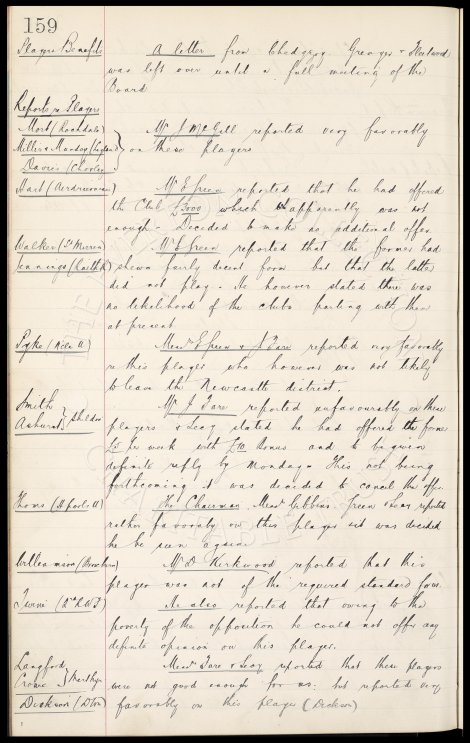 159
Players Benefits A letter from Chedgzoy. Greavyer & Fleetwood
was left over until a full meeting of the
Board
Reports re Players
Mort (Rochdale) Mr J McGill reported very favorably
Millers Munday (England) on these players
Davies (Chorley
Hart (Airdrieonians) Mr E Green reported that he had offered
the Club £3000 which apparently was not
enough. Decided to make no additional offer.
Walker (St Mirren Mr E Green reported that the former had
Jennings (Raith R) shewn fairly decent form but that the latter
did not play. He however stated there was
no likelihood of the clubs parting with them
at present
Pyke (Ntle U) Messrs E Green & J Fare reported very favorably
re this player who however was not likely
to leave the Newcastle district.
Smith } Shildon Mr J Fare reported unfavourably on these
Ashurst players & Leay stated he had offered the former
per week with £10 Bonus and to be given
definite reply by Monday. This not being
forthcoming it was decided to cancel the offer.
Thoms (Hpools U) The Chairman Messrs Gibbins. Green & Leay reported
rather favorably on this player it was decided
he be seen again
Williamson Mr D. Kirkwood reported that this
player was not of the required standard form.
He also reported that owing to the
poverty of the opposition he could not offer any
definite opinion on this player.
Langford } Merthyr Messrs Fare & Leay reported that these players
were not good enough for us. but reported very
Dickson (Dton) favorably on this player (Dickson)